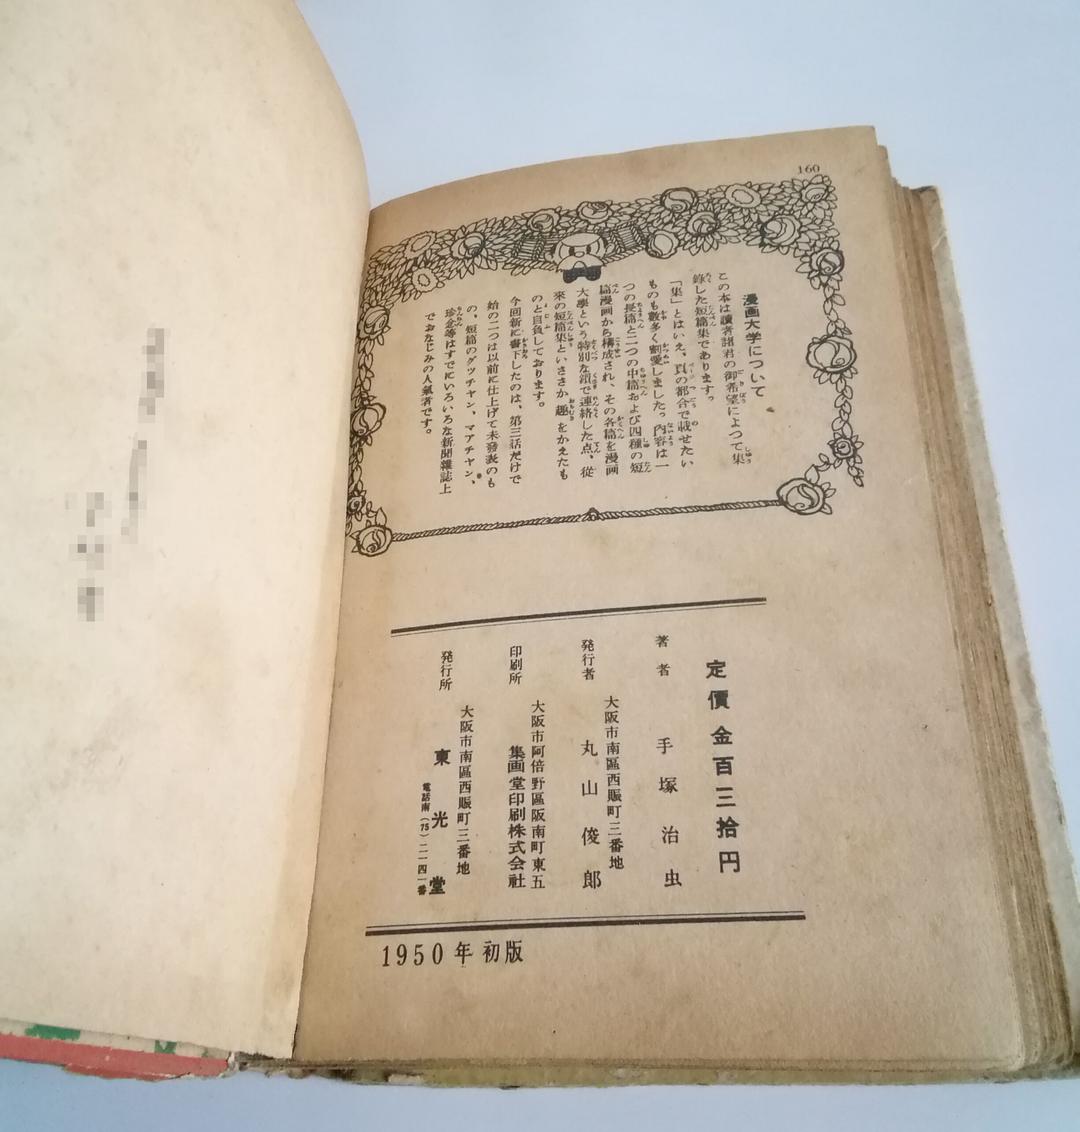 160
漫画大学について
この本は讀者諸君の御希望によつて集
錄した短篇集であります。
「集」とはいえ、頁の都合で載せたい
ものも數多く割愛しました。内容は一
つの長篇と二つの中篇および四種の短
篇漫画から構成され、その各篇を漫画
大學という特別な鎖で連絡した点、從
來の短篇集といささか趣をかえたも
のと自負しております。
今回新に書下したのは、第三話だけで
始の二つは以前に仕上げて未發表のも
の、短篇のグッチャン、マアチャン、
珍念等はすでにいろいろな新聞雜誌上
でおなじみの人氣者です。
定價金百三拾円
著者 手塚治虫
大阪市南區西賑町三番地
発行者 丸山俊郎
大阪市阿倍野區阪南町東五
印刷所 集画堂印刷株式会社
大阪市南區西賑町三番地
発行所 東光堂
電話南(75)二一四一番
1950年初版